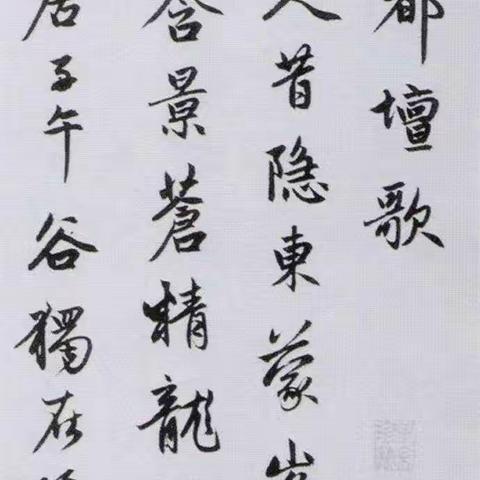 都壇歌
人昔隐東蒙峯
含景蒼精龍
居子午谷獨在